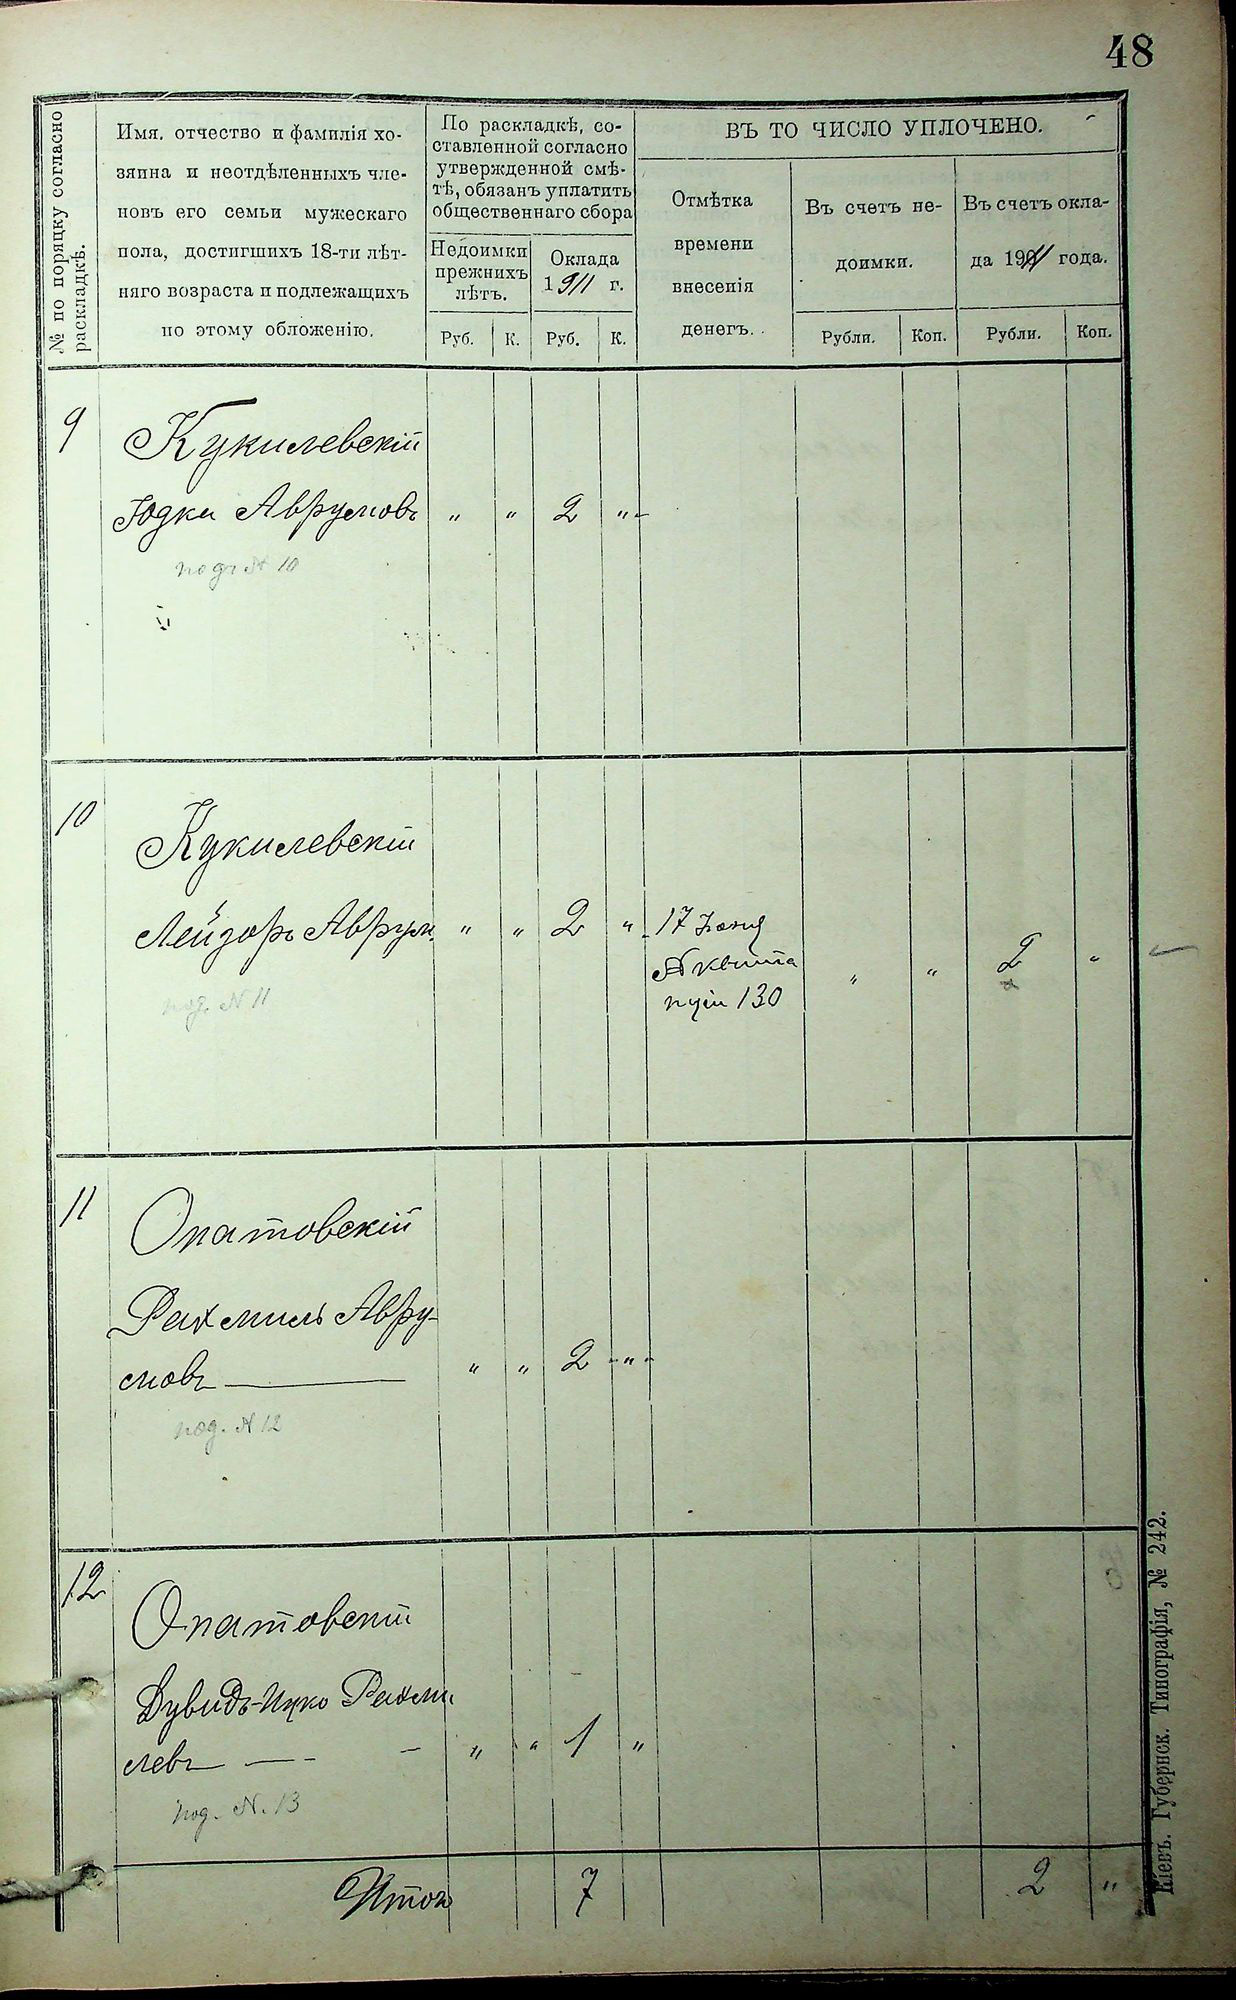 48
№ по поряцку согласно
раскладкѣ.
Имя, отчество и фамилія хо-
зяина и неотдѣленныхъ чле-
новъ его семьи мужескаго
пола, достигшихъ 18-ти лѣт-
няго возраста и подлежащихъ
по этому обложенію.
По раскладкѣ, со-
ставленной согласно
утвержденной смѣ-
тѣ, обязанъ уплатить
общественнаго сбора
Недоимки
прежнихъ
лѣтъ.
Оклада
1911 г.
Руб. К. Руб. К.
ВЪ ТО ЧИСЛО УПЛОЧЕНО.
Отмѣтка
времени
внесенія
денегъ.
Въ счетъ не-
доимки.
Рубли. Коп.
Въ счетъ окла-
да 1911 года.
Рубли. Коп.
9
Кукилевскій
Юдка Аврумовъ " " 2 "
под. № 10
10
Кукилевскій
Лейзоръ Аврум. " " 2 " 17 Іюня
№ квита
нціи 130 " " 2 "
под. № 11
11
Опатовскій
Рахмиль Авру-
мовъ " " 2 "
под. № 12
12
Опатовскій
Дувидъ-Ицко Рахми
левъ " " 1 "
под. № 13
Итого 7 2 "
Кіевъ. Губернск. Типографія, № 242.